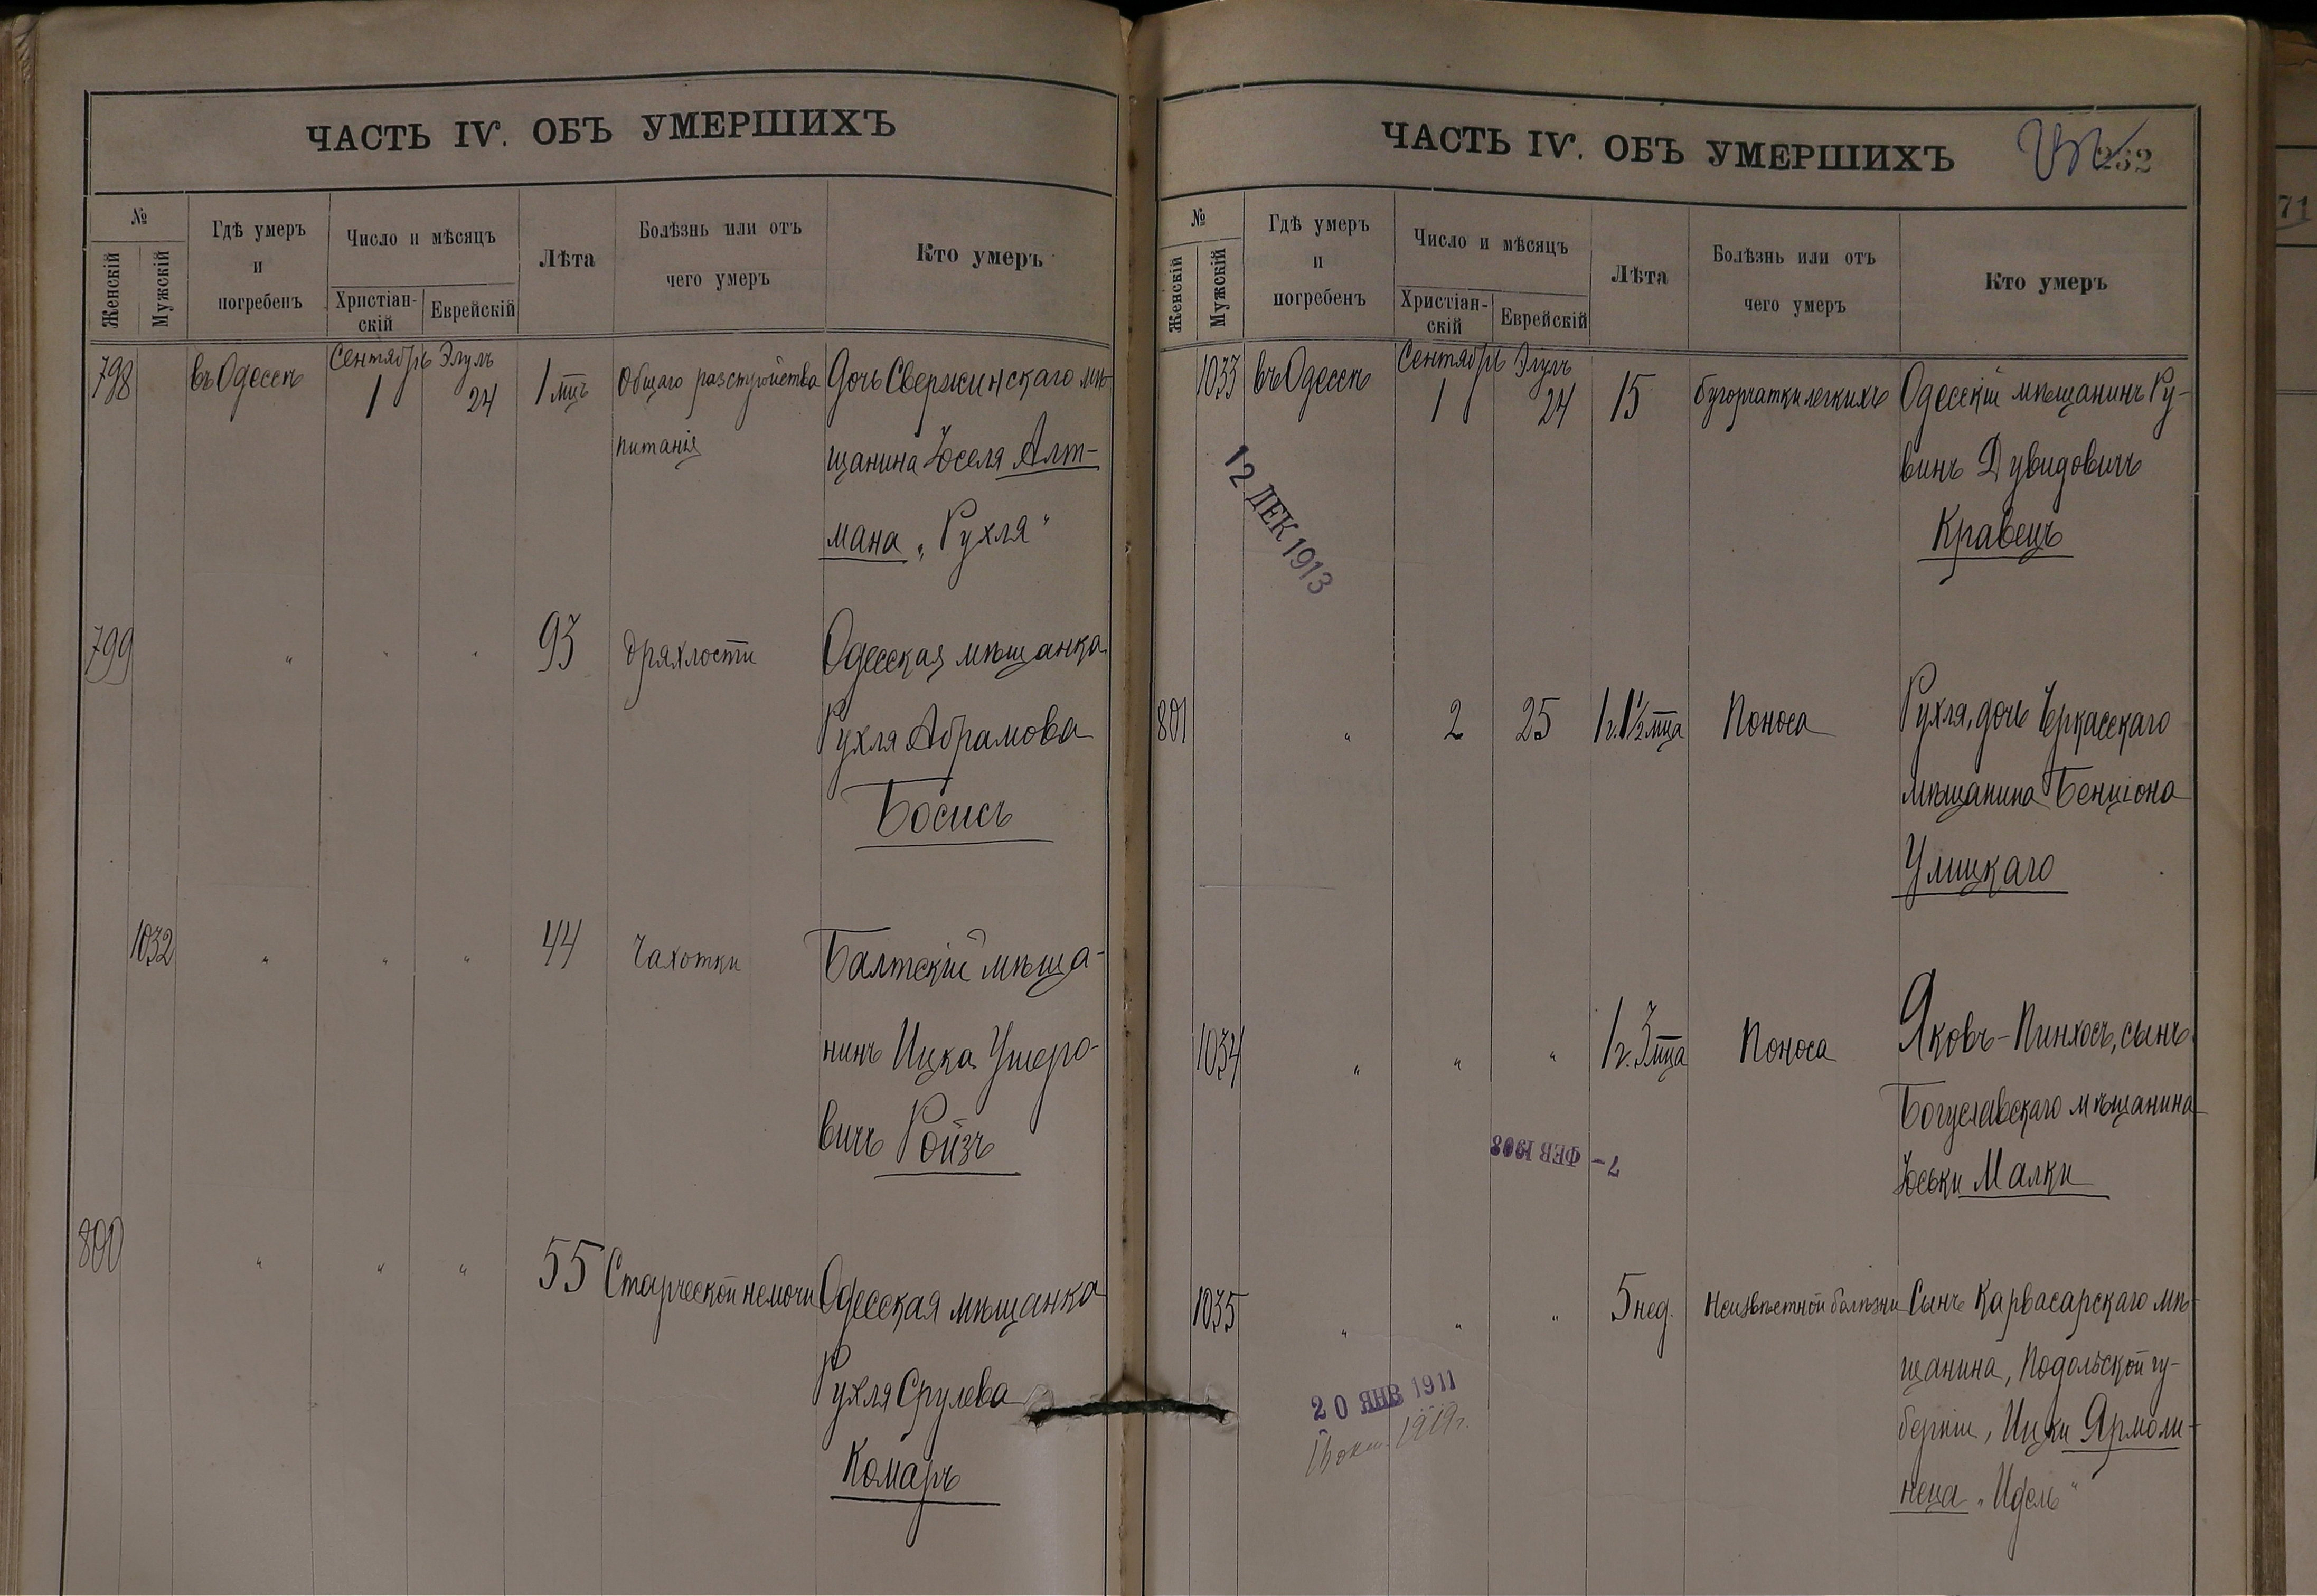 ЧАСТЬ IV. ОБЪ УМЕРШИХЪ
№
Женскій
Мужскій
Гдѣ умеръ
и
погребенъ
Число и мѣсяцъ
Христіан-
скій
Еврейскій
Лѣта
Болѣзнь или отъ
чего умеръ
Кто умеръ
798 въ Одессѣ Сентябрь 1 Элулъ 24 1 мцъ Общаго разстройства Дочь Свержинскаго мѣ-
питанія щанина Іоселя Алт-
мана „Рухля“
799 " " " 93 дряхлости Одесская мѣщанка
Рухля Абрамова
Босисъ
1032 " " " 44 Чахотки Балтскій мѣща-
нинъ Ицка Ушеро-
вичъ Ройзъ
800 " " " 55 Старческой немочи Одесская мѣщанка
Рухля Срулева
Комаръ
ЧАСТЬ IV. ОБЪ УМЕРШИХЪ
232
№
Женскій
Мужскій
Гдѣ умеръ
и
погребенъ
Число и мѣсяцъ
Христіан-
скій
Еврейскій
Лѣта
Болѣзнь или отъ
чего умеръ
Кто умеръ
1033 въ Одессѣ Сентябрь 1 Элулъ 24 15 бугорчатки легкихъ Одесскій мѣщанинъ Ру-
винъ Дувидовичъ
Кравецъ
12 ДЕК 1913
801 " 2 25 1 г. 1½ мца Поноса Рухля, дочь Черкасскаго
мѣщанина Бенціона
Улицкаго
1034 " " " 1 г. 3 мца Поноса Яковъ-Пинхосъ, сынъ
Богуславскаго мѣщанина
Іоськи Малки
7- ФЕВ 1908
1035 " " " 5 нед. Неизвѣстной болѣзни Сынъ Карвасарскаго мѣ-
щанина, Подольской гу-
берніи, Ицки Ярмоли-
неца „Идель“
20 ЯНВ 1911
1919 г.
71